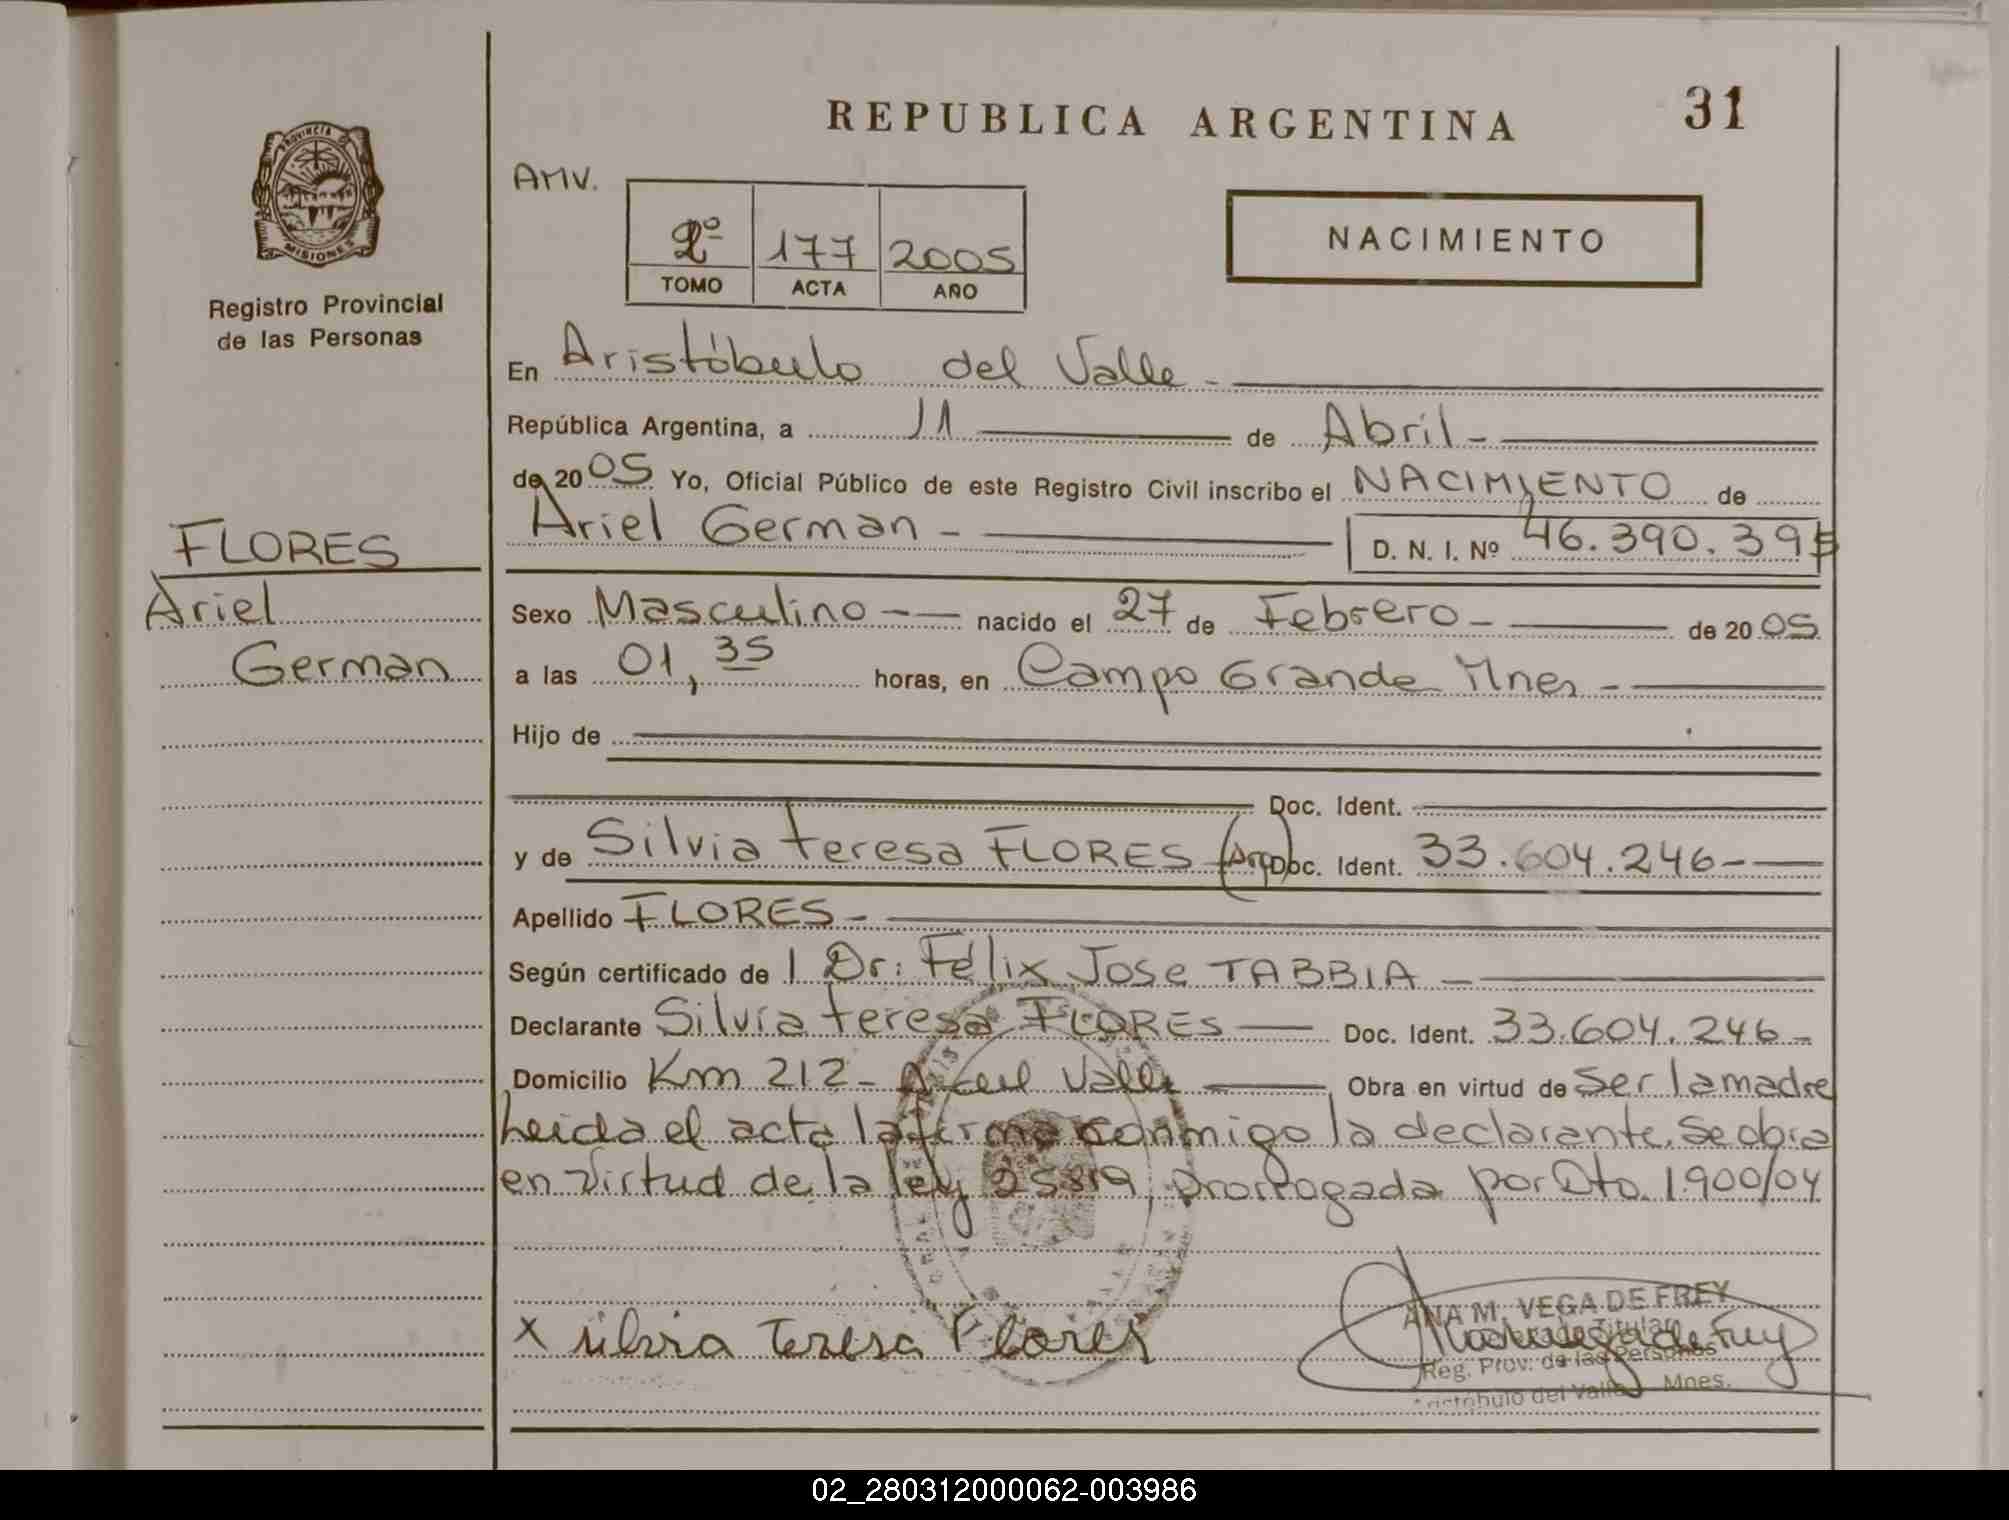 REPUBLICA ARGENTINA 31
PROVINCIA
MISIONES
Registro Provincial
de las Personas
AMV.
2º 177 2005
TOMO ACTA AÑO
NACIMIENTO
En Aristóbulo del Valle -
República Argentina, a 11 de Abril -
de 2005 Yo, Oficial Público de este Registro Civil inscribo el NACIMIENTO de
Ariel German - D. N. I. Nº 46.390.39
FLORES
Ariel
German
Sexo Masculino -- nacido el 27 de Febrero - de 2005
a las 01,35 horas, en Campo Grande Mnes -
Hijo de
Doc. Ident.
y de Silvia teresa FLORES (Arg) Doc. Ident. 33.604.246-
Apellido FLORES -
Según certificado de l Dr: Félix Jose TABBIA -
Declarante Silvia teresa FLORES Doc. Ident. 33.604.246-
Domicilio Km 212- Valle Obra en virtud de ser la madre
Leida el acta la firma conmigo la declarante. Se obra
en virtud de la ley 25819, prorrogada por Dto. 1.900/04
x silvia Teresa Flores
ANA M. VEGA DE FREY
Titular
Reg. Prov. de las Personas
Aristóbulo del Valle - Mnes.
02_280312000062-003986